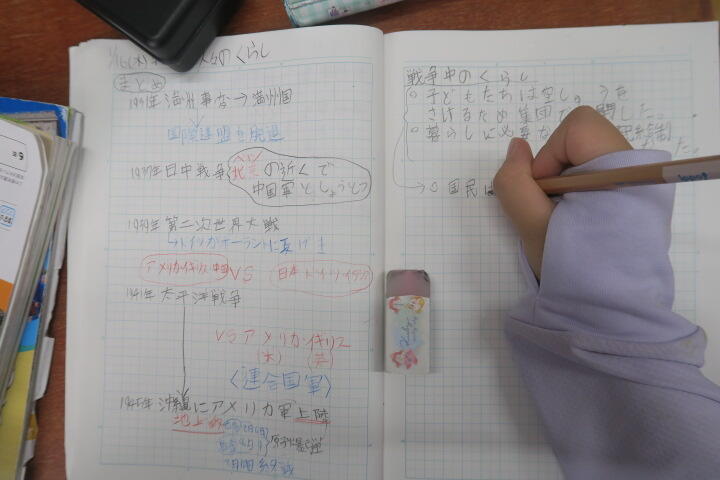 人々のくらし
まとめ
1931年 満州事変→満州国
国際連盟を脱退
1937年 日中戦争
北京の近くで
中国軍としょうとつ
1939年 第二次世界大戦
アメリカ・イギリス・中国 VS 日本・ドイツ・イタリア
1941年 太平洋戦争
VS アメリカ・イギリス
(米) (英)
〈連合国軍〉
1945年 沖縄にアメリカ軍上陸
地上戦
戦争中のくらし
○子どもたちは空しゅうを
さけるため集団
○暮らしに必要
○国民は